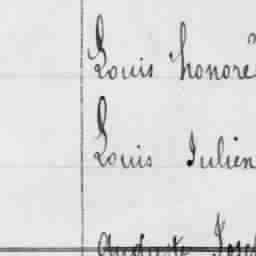 Louis honoré
Louis Julien
Auguste